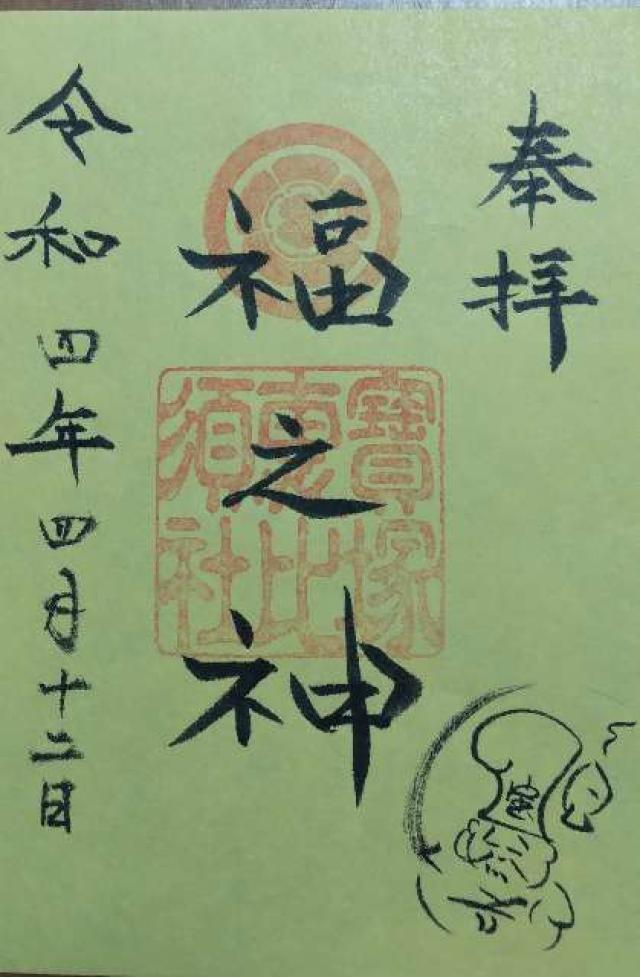 奉拝
福之神
寶塚
恵比
須社
令和四年四月十二日